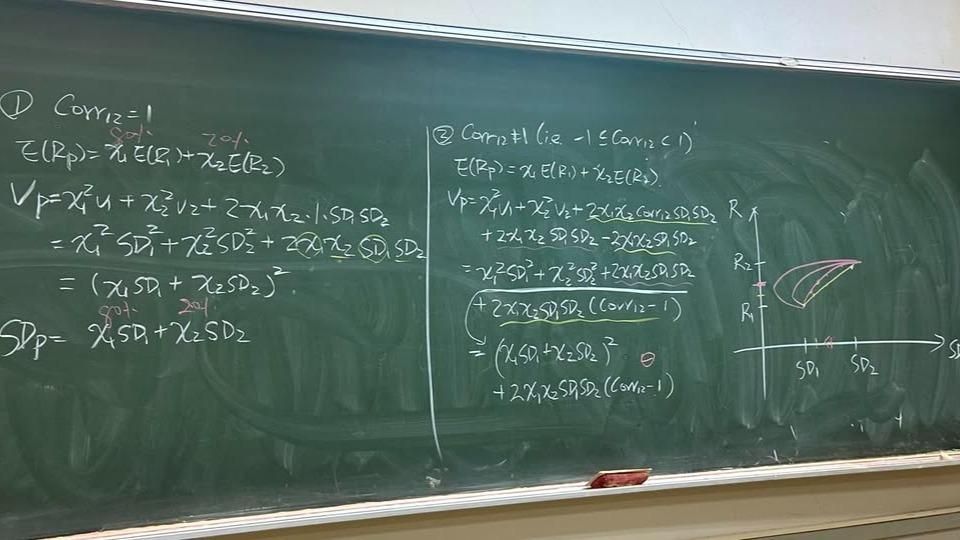 ① Corr₁₂=1
80% 20%
E(Rp)=x₁E(R₁)+x₂E(R₂)
Vp=x₁²V₁+x₂²V₂+2x₁x₂·1·SD₁SD₂
=x₁²SD₁²+x₂²SD₂²+2x₁x₂SD₁SD₂
=(x₁SD₁+x₂SD₂)²
80% 20%
SDp=x₁SD₁+x₂SD₂
② Corr₁₂≠1 (i.e. -1≤Corr₁₂<1)
E(Rp)=x₁E(R₁)+x₂E(R₂)
Vp=x₁²V₁+x₂²V₂+2x₁x₂Corr₁₂SD₁SD₂
+2x₁x₂SD₁SD₂-2x₁x₂SD₁SD₂
=x₁²SD₁²+x₂²SD₂²+2x₁x₂SD₁SD₂
+2x₁x₂SD₁SD₂(Corr₁₂-1)
=(x₁SD₁+x₂SD₂)² ⊖
+2x₁x₂SD₁SD₂(Corr₁₂-1)
R
R₂
R₁
SD₁ SD₂ SD